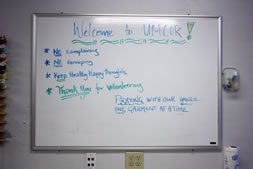 Welcome to UMCOR!
* No complaining
* No whining
* Keep Healthy happy thoughts.
* Thank You for volunteering
PRAYING WITH OUR HANDS
ONE GARMENT AT A TIME.